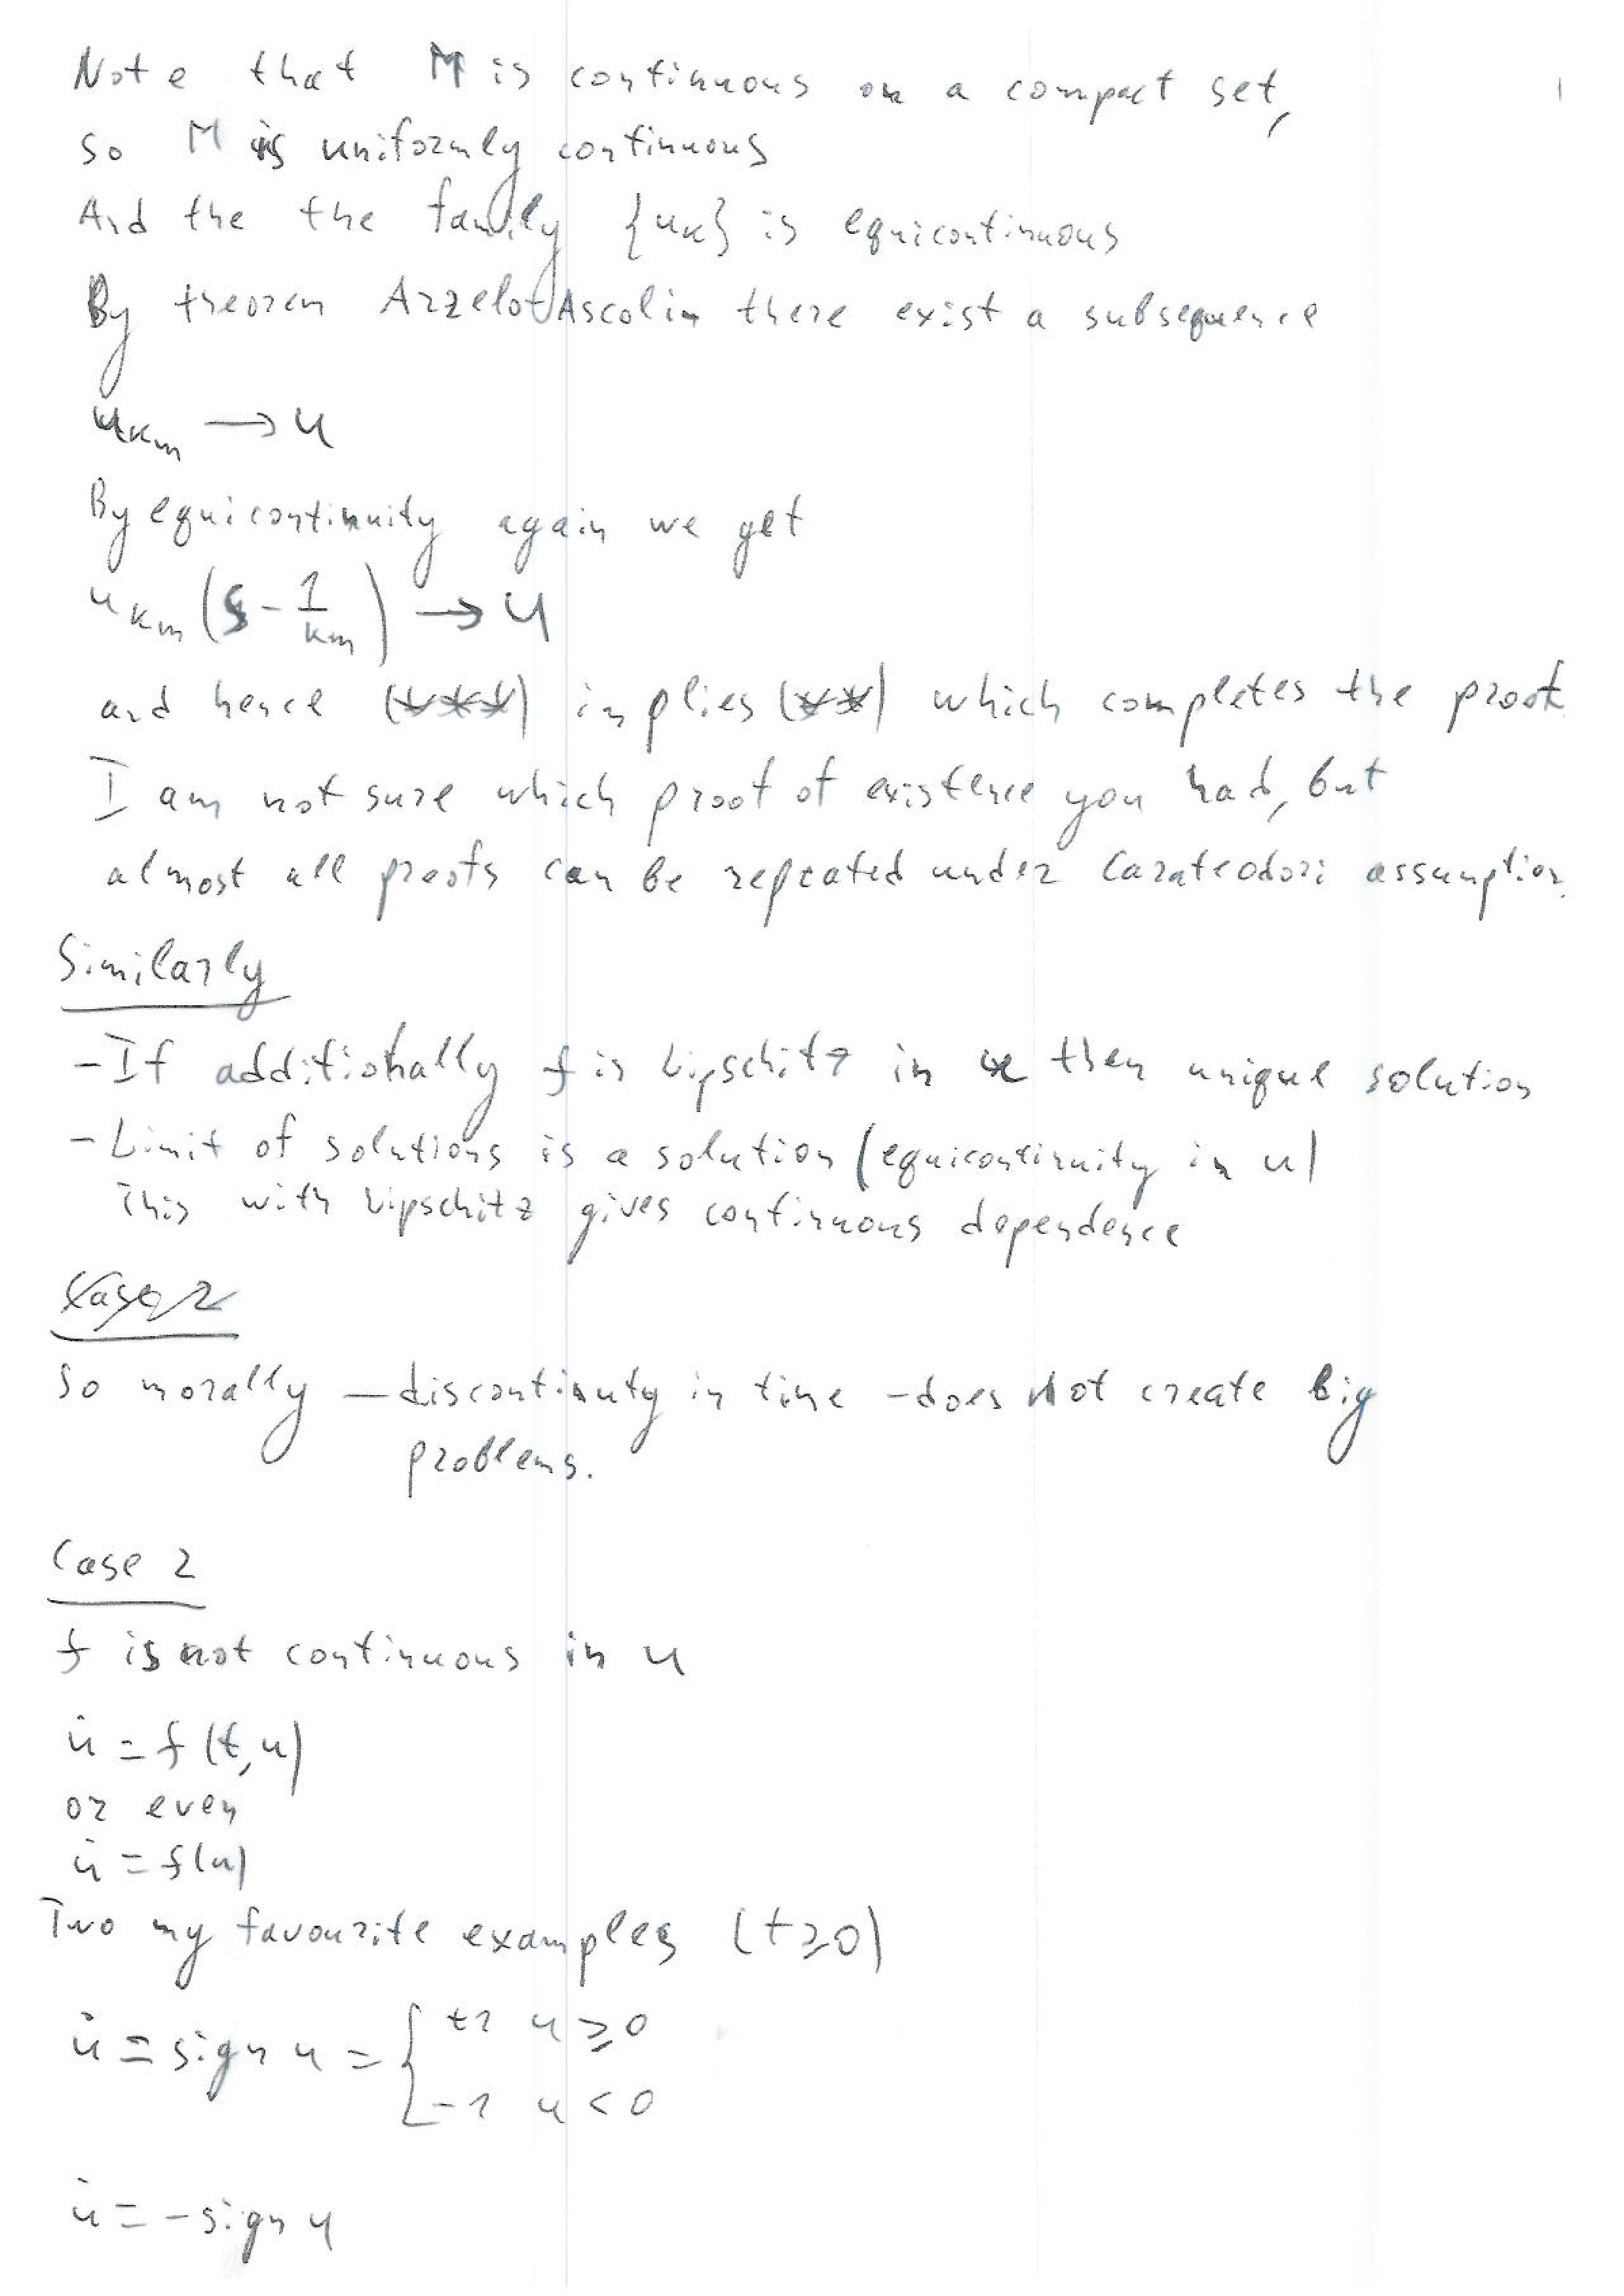 Note that M is continuous on a compact set,
so M is uniformly continuous
And the the family {uₖ} is equicontinuous
By theorem Arzelo-Ascolin there exist a subsequence
u_{k_m} → u
By equicontinuity again we get
u_{k_m}(s - 1/k_m) → u
and hence (***) implies (**) which completes the proof.
I am not sure which proof of existence you had, but
almost all proofs can be repeated under Carateodori assumption.
Similarly
- If additionally f is Lipschitz in u then unique solution
- Limit of solutions is a solution (equicontinuity in u)
This with Lipschitz gives continuous dependence
Case 2
So morally — discontinuty in time - does not create big
problems.
Case 2
f is not continuous in u
u̇ = f(t,u)
or even
u̇ = f(u)
Two my favourite examples (t≥0)
u̇ = sign u = { +1 u ≥ 0
-1 u < 0
u̇ = -sign u